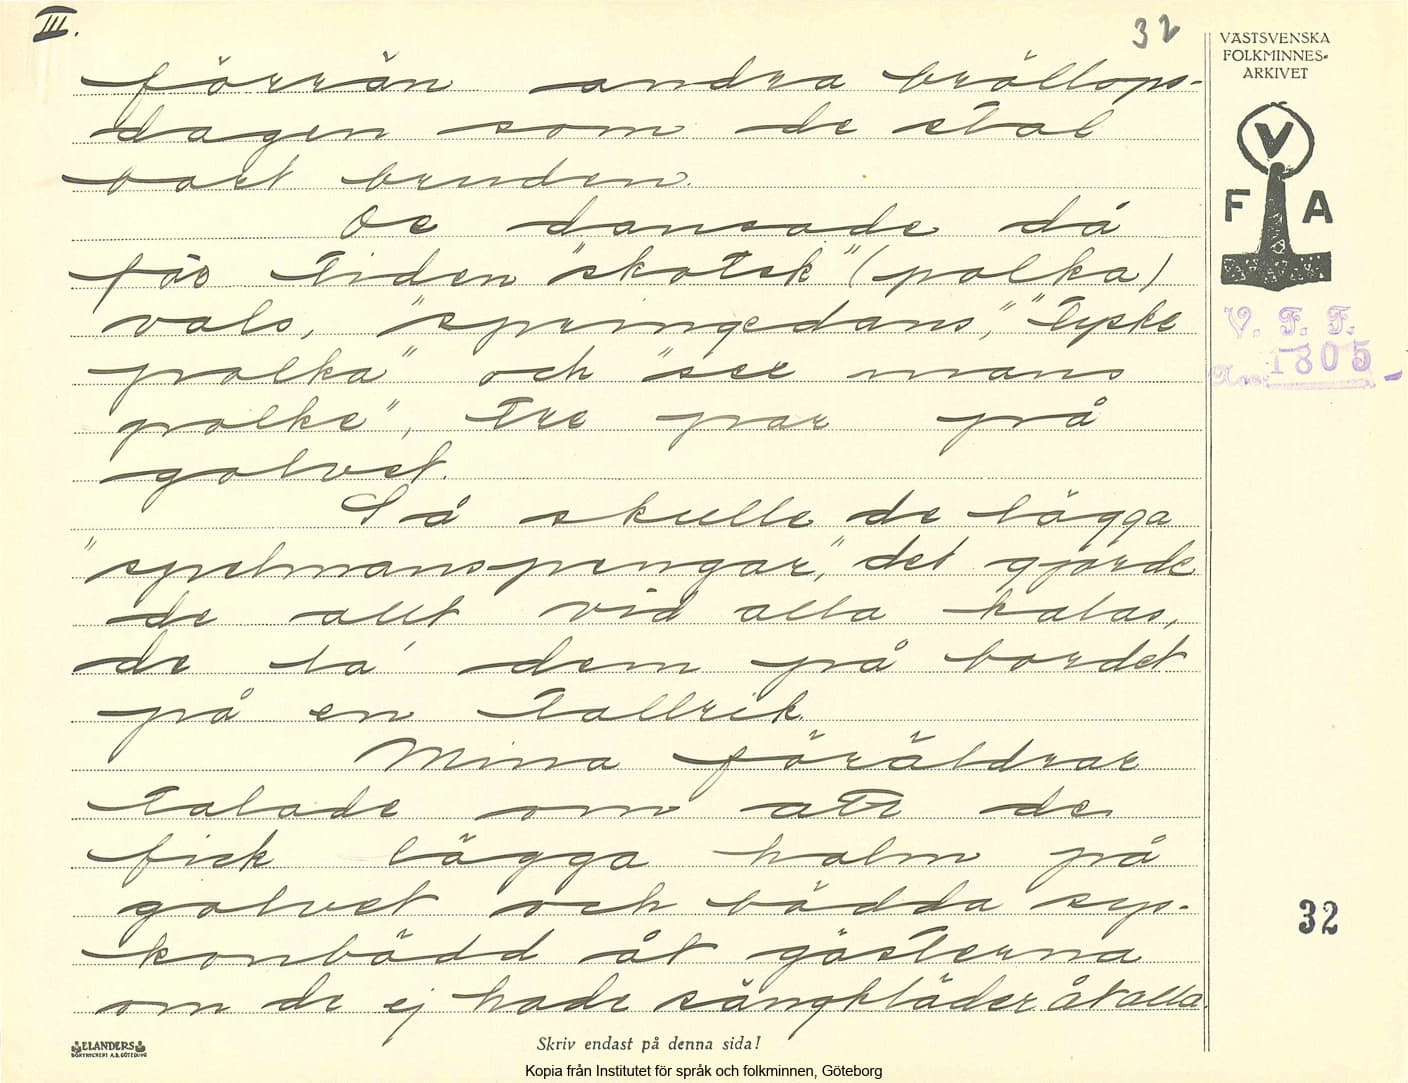 III.
32
VÄSTSVENSKA
FOLKMINNES-
ARKIVET
V
F A
V. F. F.
1805
förrän andra bröllops-
dagen som de stal
bort bruden.
De dansade då
för tiden "skotsk" (polka)
vals, "springedans", "Tyske
polka" och "sex mans
polke", tre par på
golvet.
Så skulle de lägga
"spelmanspengar", det gjorde
de allt vid alla kalas,
de la' dem på bordet
på en tallrik.
Mina föräldrar
talade om att de
fick lägga halm på
golvet och bädda sys-
konbädd åt gästerna
om de ej hade sängkläder åt alla.
32
ELANDERS
BOKTRYCKERI A.B. GÖTEBORG
Skriv endast på denna sida!
Kopia från Institutet för språk och folkminnen, Göteborg